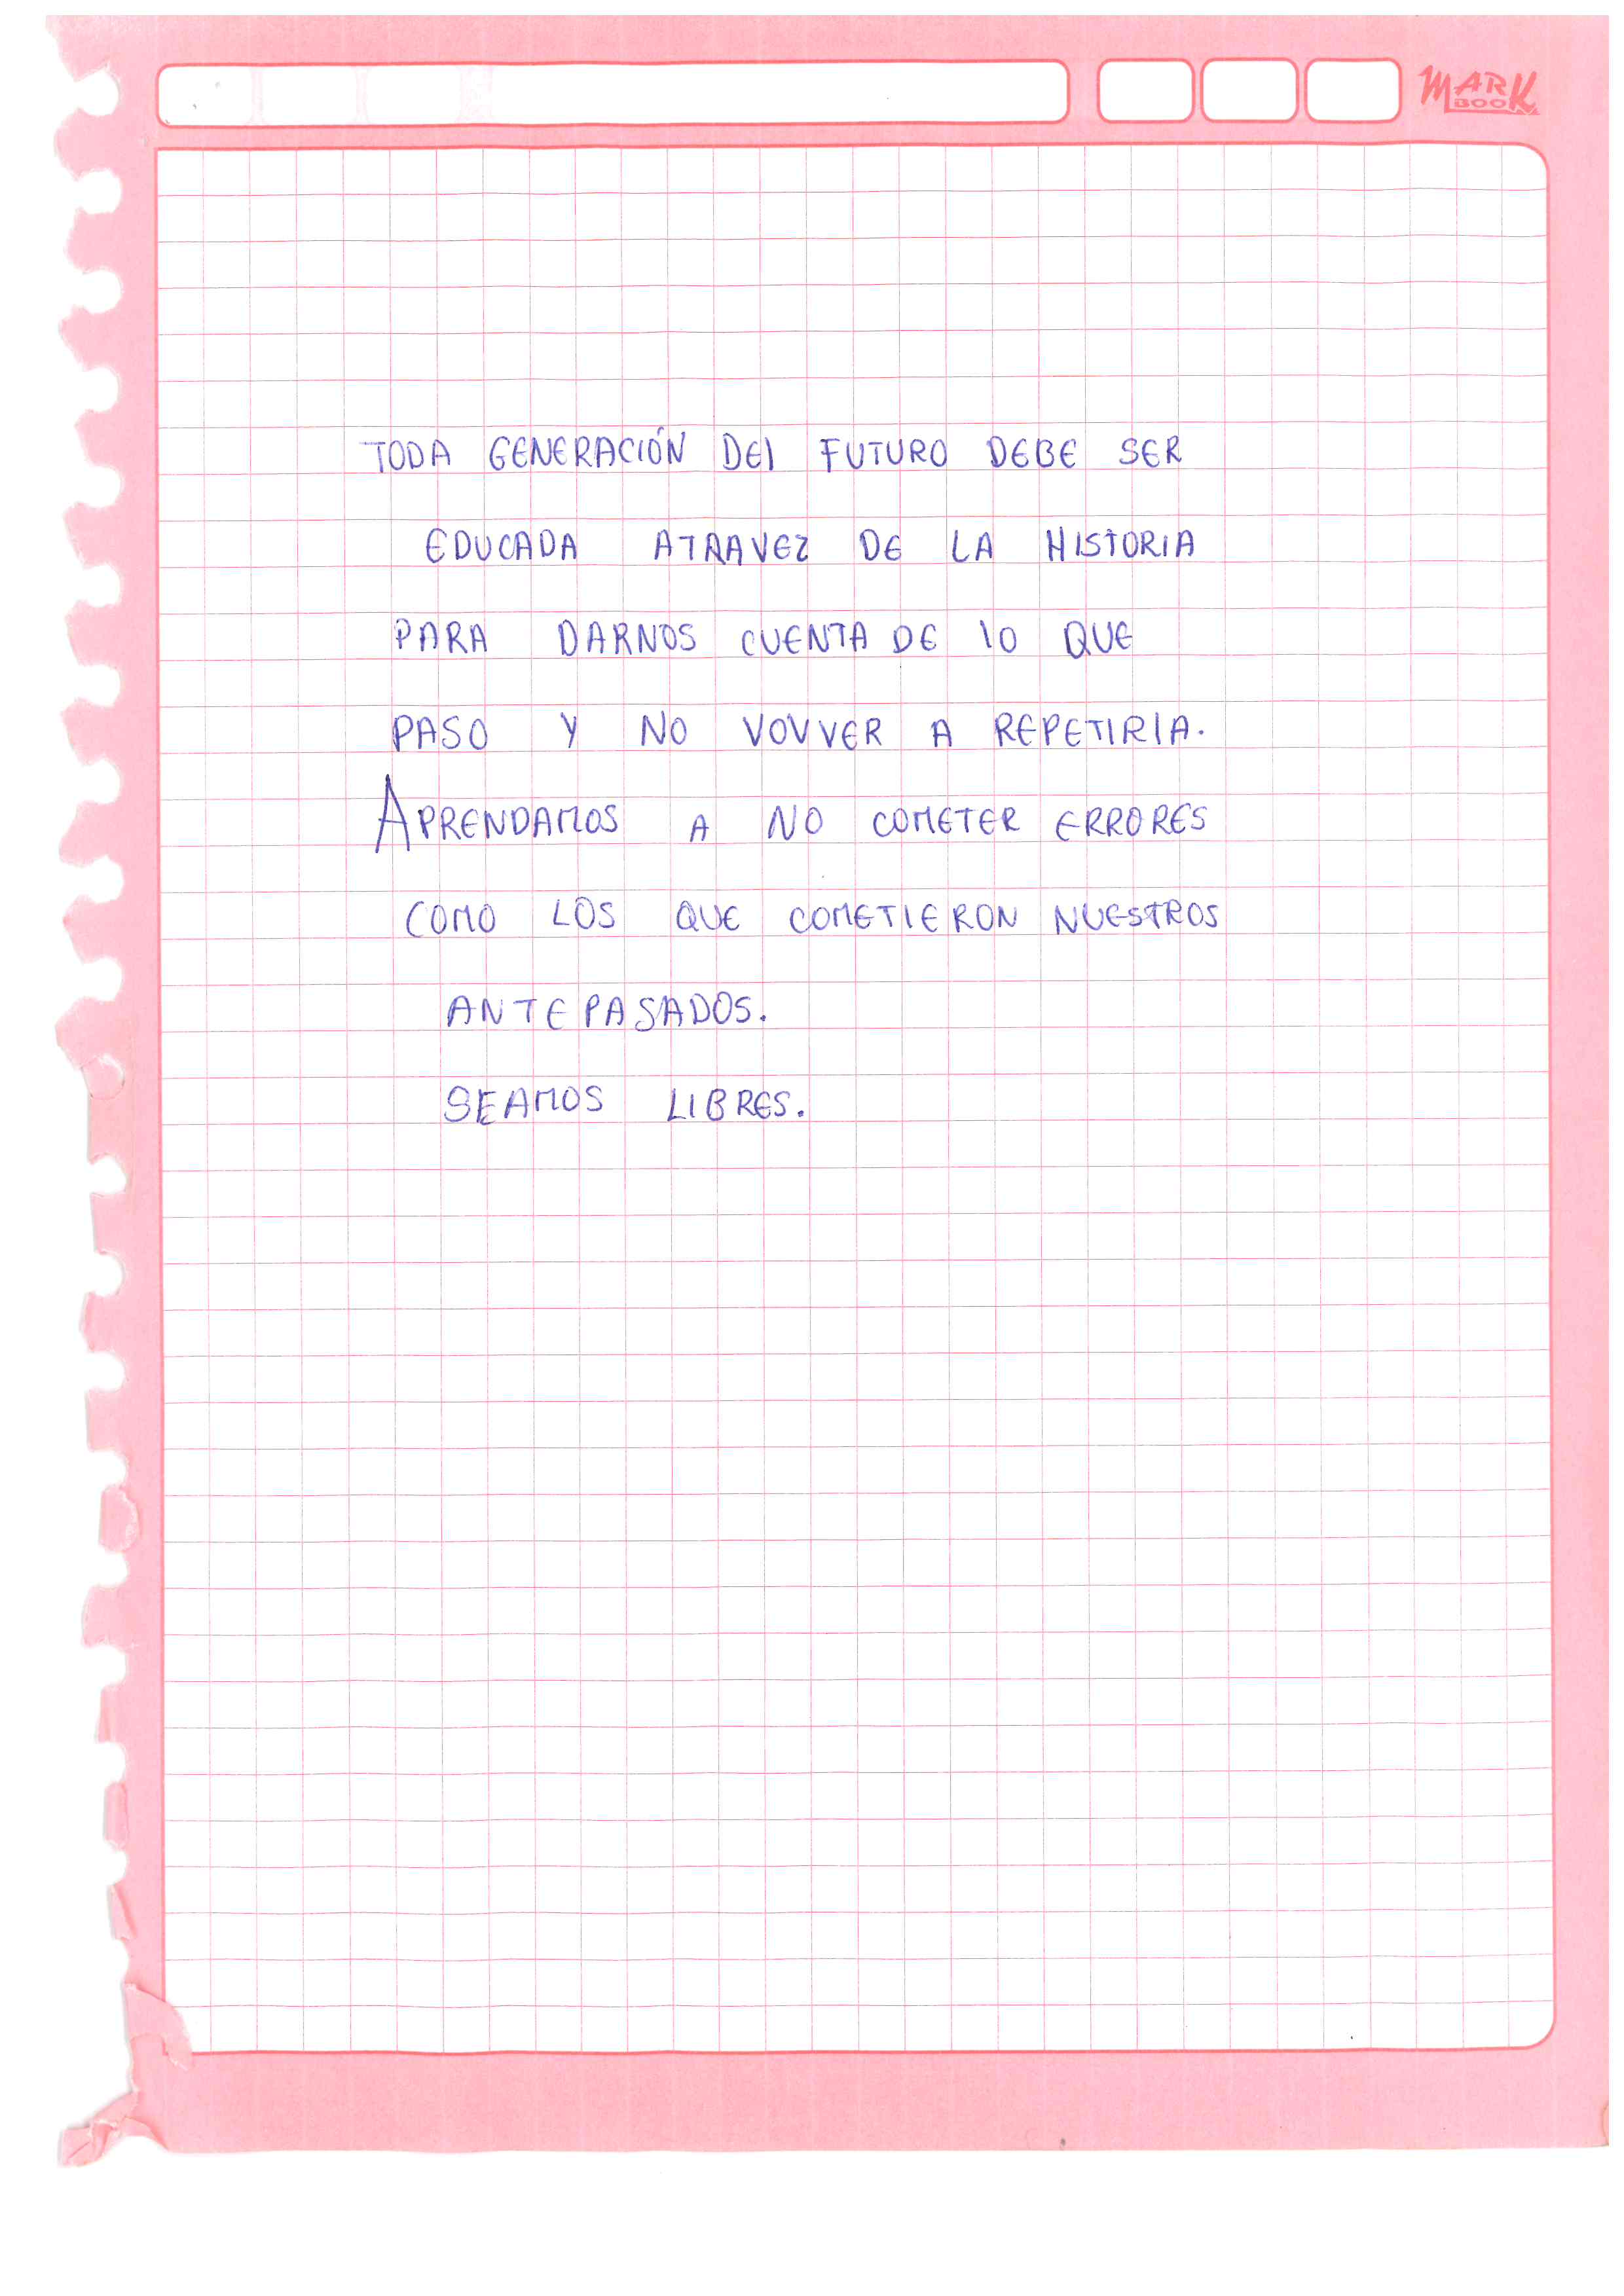 MARK
BOOK
TODA GENERACIÓN DEl FUTURO DEBE SER
EDUCADA ATRAVEZ DE LA HISTORIA
PARA DARNOS CUENTA DE lO QUE
PASO Y NO VOVVER A REPETIRlA.
APRENDAMOS A NO COMETER ERRORES
COMO LOS QUE COMETIERON NUESTROS
ANTEPASADOS.
SEAMOS LIBRES.